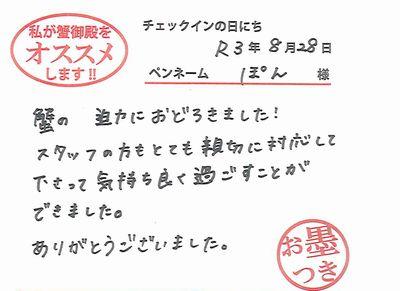 私が蟹御殿を
オススメ
します!!
チェックインの日にち
R3年8月28日
ペンネーム ぽん 様
蟹の 迫力におどろきました!
スタッフの方もとても親切に対応して
下さって気持ち良く過ごすことが
できました。
ありがとうございました。
お墨
つき